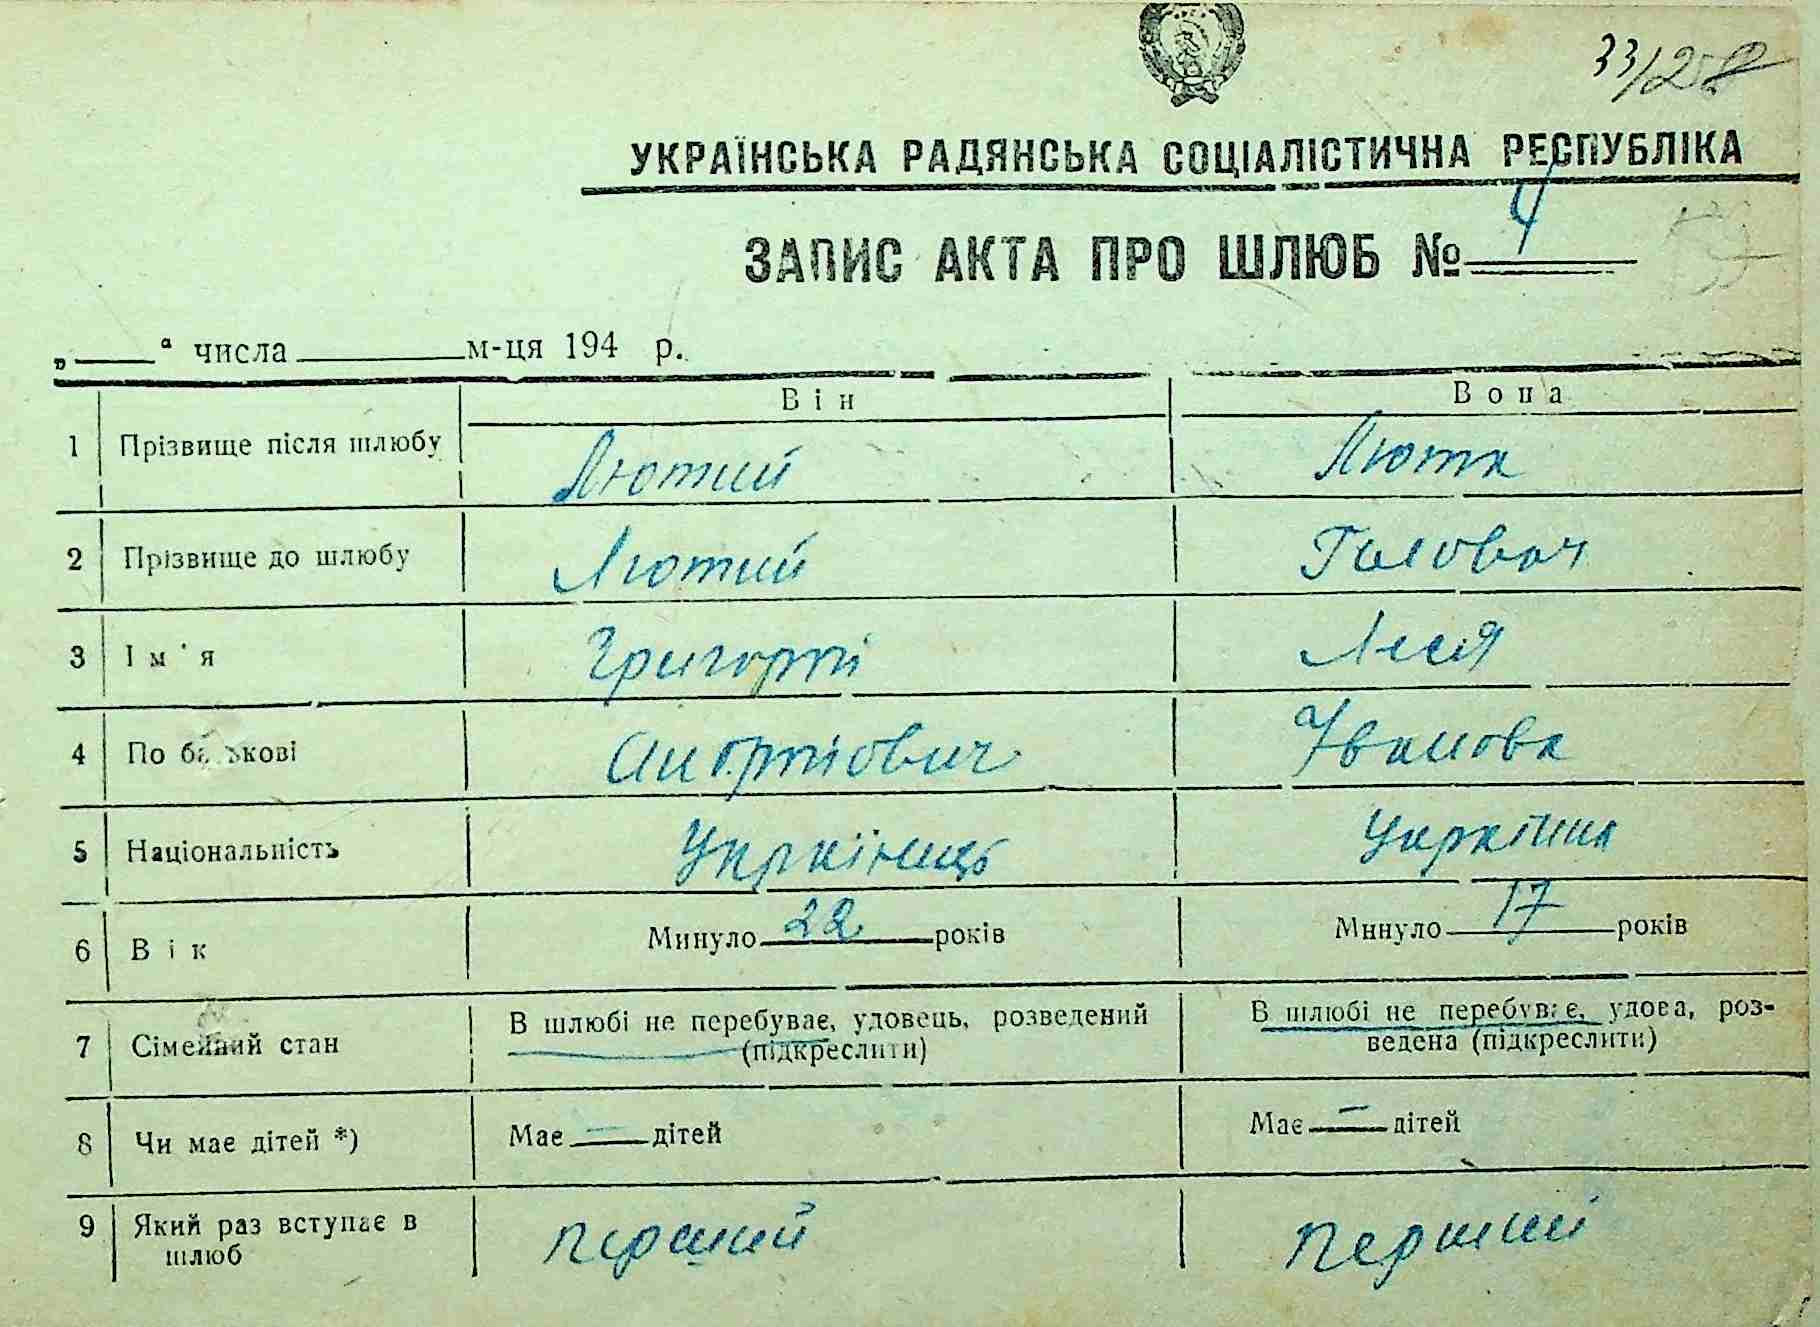 33/
УКРАЇНСЬКА РАДЯНСЬКА СОЦІАЛІСТИЧНА РЕСПУБЛІКА
ЗАПИС АКТА ПРО ШЛЮБ № 4
„____" числа ________ м-ця 194 р.
Він Вона
1 Прізвище після шлюбу Лютий Люта
2 Прізвище до шлюбу Лютий Головач
3 Ім'я Григорій Леся
4 По батькові Іванова
5 Національність Українець Українка
6 Вік Минуло 22 років Минуло 17 років
7 Сімейний стан В шлюбі не перебуває, удовець, розведений (підкреслити) В шлюбі не перебуває, удова, роз-
ведена (підкреслити)
8 Чи має дітей *) Має — дітей Має — дітей
9 Який раз вступає в шлюб перший перший